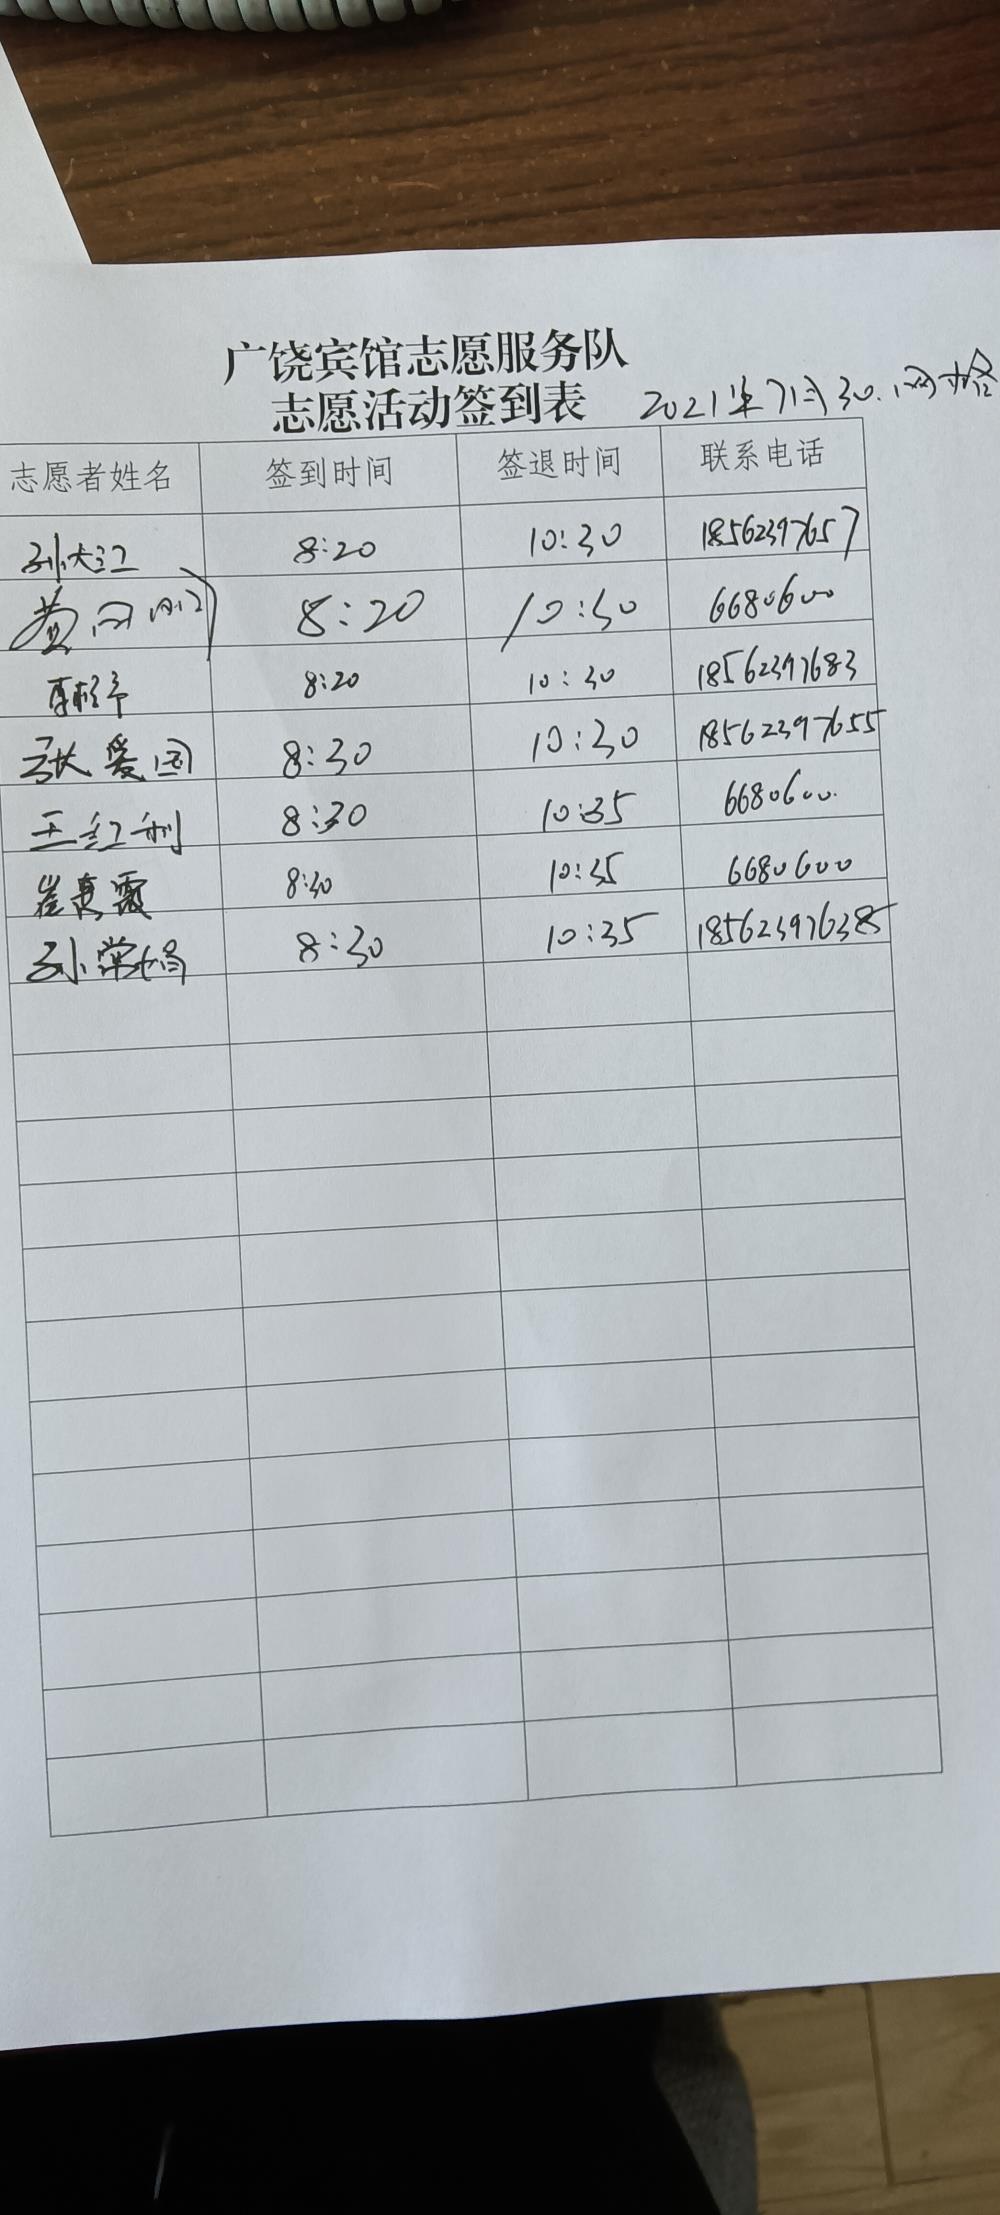 广饶宾馆志愿服务队
志愿活动签到表 2021年7月30.网格
志愿者姓名 签到时间 签退时间 联系电话
孙大江 8:20 10:30 18562397657
黄 8:20 10:30 6680600
8:20 10:30 18562397683
张爱国 8:30 10:30 18562397655
王红利 8:30 10:35 6680600
崔惠霞 8:30 10:35 6680600
孙常娟 8:30 10:35 185623976385